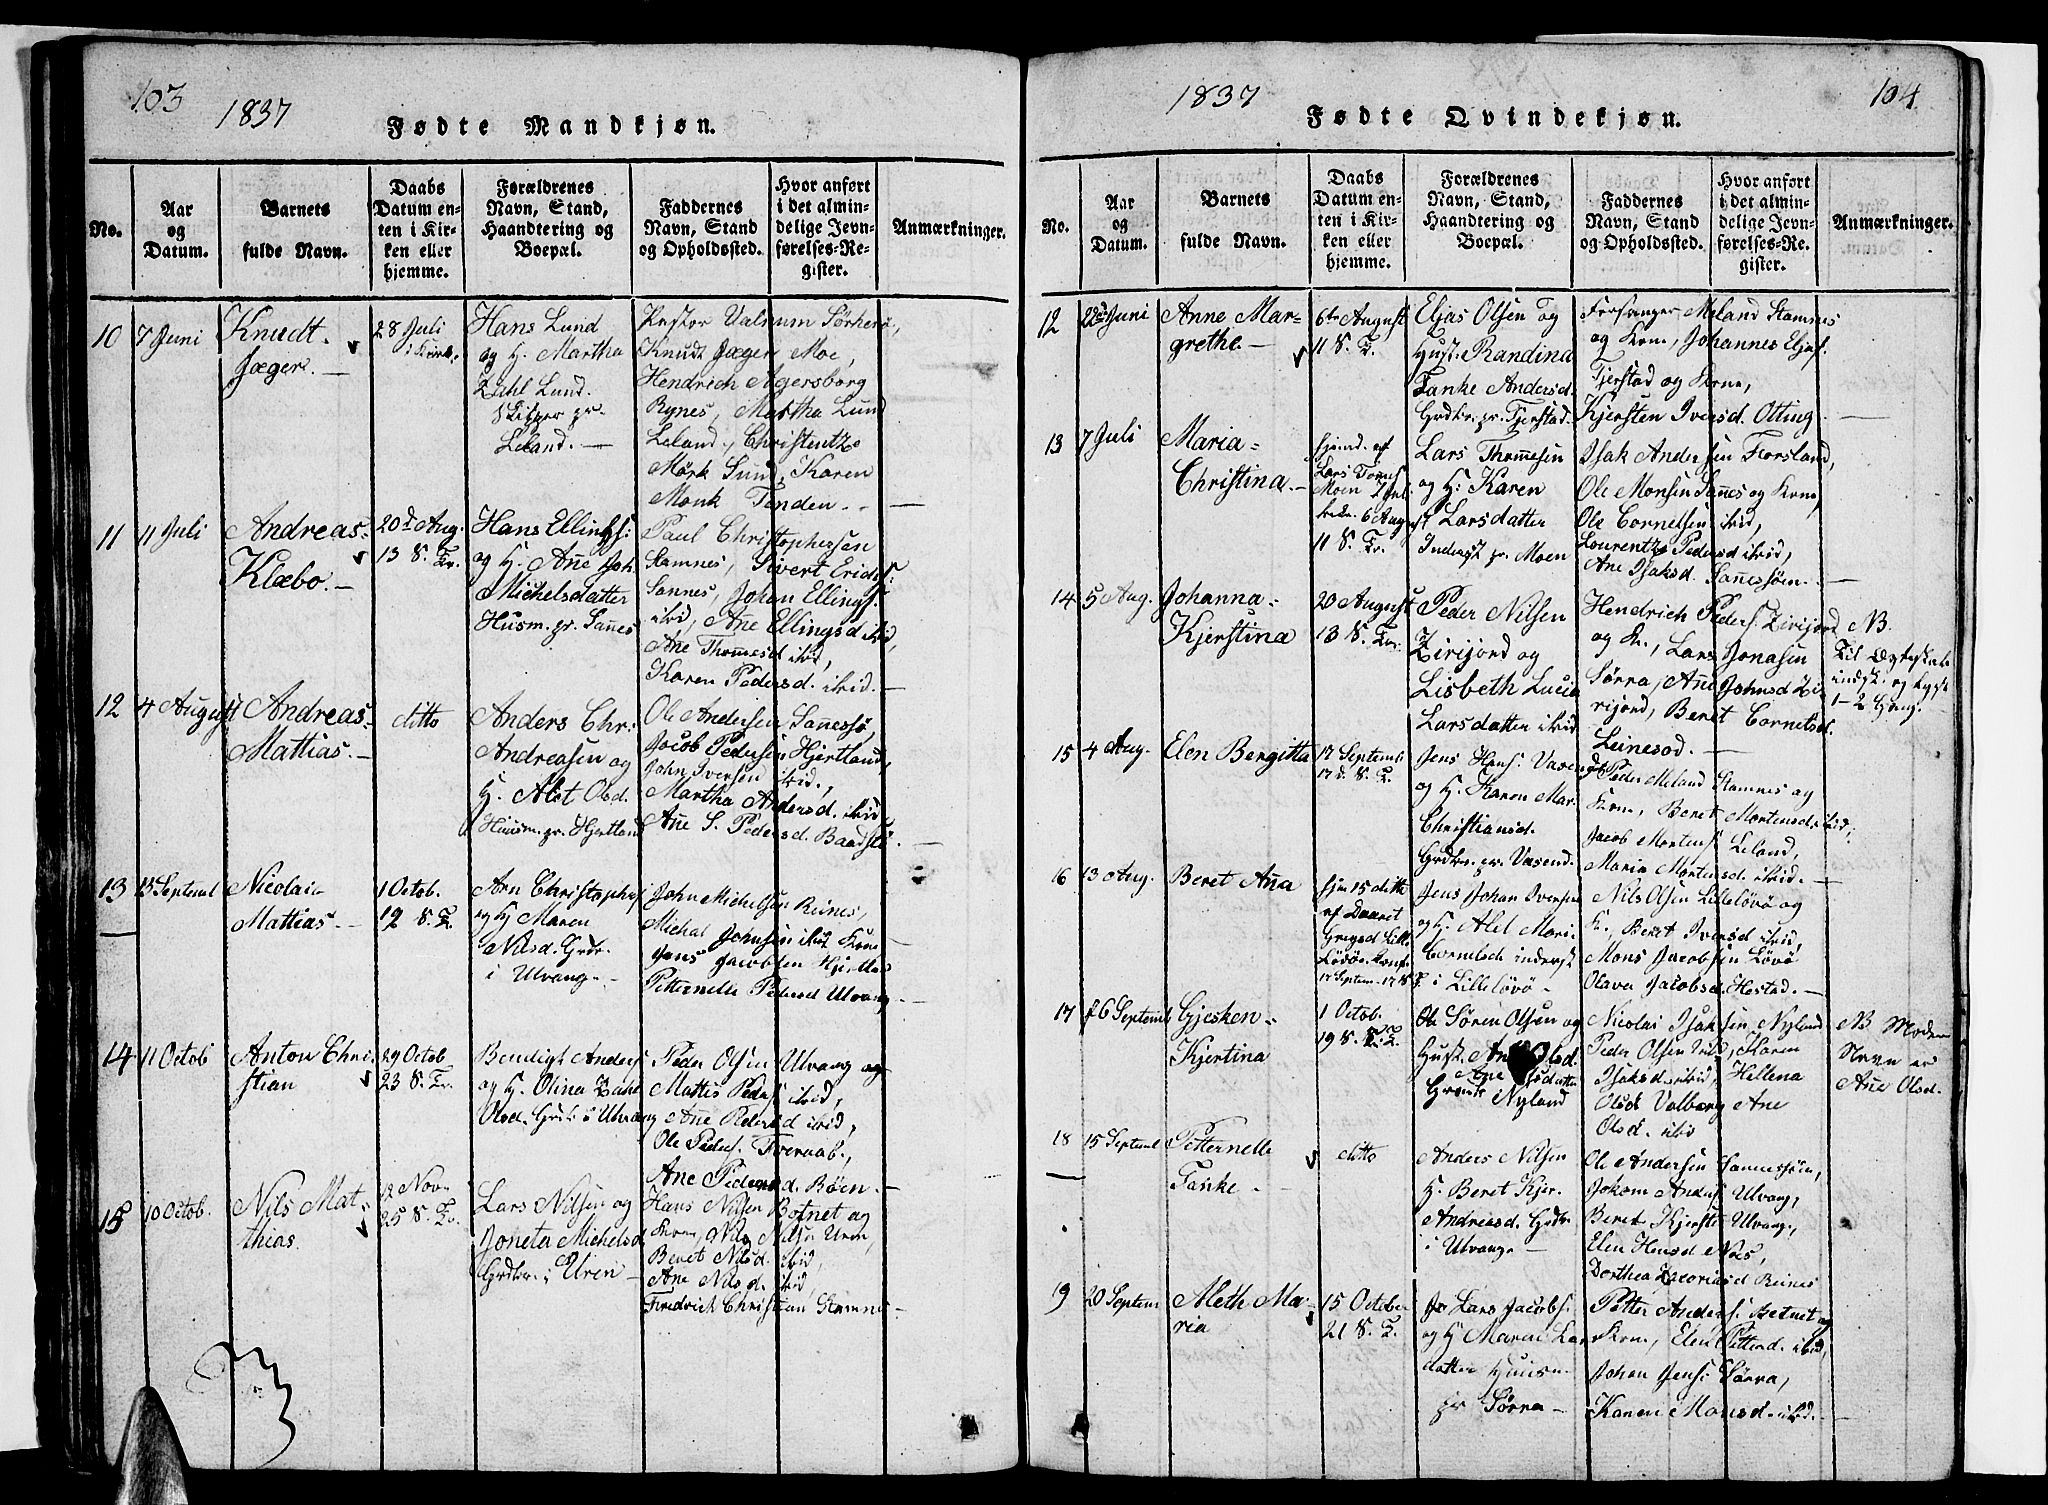 103
1837
Fødte Mandkjøn.
No.
Aar
og
Datum.
Barnets
fulde Navn.
Daabs
Datum en-
ten i Kir-
ken eller
hjemme.
Forældrenes
Navn, Stand,
Haandtering og
Boepæl.
Faddernes
Navn, Stand
og Opholdssted.
Hvor anført
i det almin-
delige Jevn-
førelses-Re-
gister.
Anmærkninger.
10
7 Juni
Knudt
Jæger.
28 Juli
i Kirk.
Hans Lund
og H. Martha
Zahl Lund.
pr.
Leland.
Pastor Valnum Sørherø,
Knudt Jæger Moe,
Hendrich Agersborg
Rynes, Martha Lund
Leland, Christentze
Mørk Sund, Karen
Monk Tenden.
11
11 Juli
Andreas
Klæbo.
20 d Aug.
13 S. Tr.
Hans Ellingss:
og H. Ane Joh.
Michelsdatter
Husm. pr. Sanes
Paul Christophersen
Stamnes, Sivert Erichs:
Sannes, Johan Ellings.
ibid, Ane Ellingsd ibid,
Ane Thomesd ibid,
Karen Pedersd. ibid.
12
4 August
Andreas
Mattias.
ditto
Anders Chr:
Andreasen og
H. Alet Olsd.
Huusm. pr. Hjertland
Ole Andersen Sanessø,
Jacob Pedersen Hjertland,
John Iversen ibid.,
Martha Andersd. ibid
Ane S. Pedersd. Baadstø.
13
13 Septembl
Nicolai
Mattias.
1 Octob.
19 S. T.
Arn Christophs
og H Maren
Nilsd. Grdr.
i Ulvang.
John Michelsen Reines,
Michal Johnsen ibid Kone
Jens Jacobsen Hjertlad
Petternelle Pedersd Ulvang.
14
11 Octob
Anton Chri
stian
29 Octob
23 S. Tr.
Bendigt Anders
og H. Olina Zahl
Olsd. Grdr. i Ulvang
Peder Olsen Ulvang og
Mattis Peders ibid,
Ane Pedersd ibid,
Ole Peders. Tveraab.,
Ane Pedersd. Bøen.
15
10 Octob.
Nils Mat-
thias.
12 Nov.
25 S. Tr.
Lars Nilsen og
Joneta Michelsd
Grdbr. i Uren
Hans Nilsen Botnet og
Kone, Nils Nilsen Uren,
Beret Nilsd. ibid,
Ane Nilsd. ibid
Fredrich Christian Stamnes
1837
104
Fødte Qvindekjøn.
No.
Aar
og
Datum.
Barnets
fulde Navn.
Daabs
Datum en-
ten i Kir-
ken eller
hjemme.
Forældrenes
Navn, Stand,
Haandtering og
Boepæl.
Faddernes
Navn, Stand
og Opholdssted.
Hvor anført
i det almin-
delige Jevn-
førelses-Re-
gister.
Anmærkninger.
12
22de Juni
Anne Mar-
grethe.
6te August
11 S. T.
Eljas Olsen og
Hust. Randina
Tanke Andersd.
Grdbr. pr. Tjerstad.
Forsanger Meland Stamnes
og Kone, Johannes Eljas.
Tjerstad og Kone,
Kjersten Iversd. Otting.
13
7 Juli
Maria
Christina.
hjemd. af
Lars Tomes
Moen
6 August
11 S. Tr.
Lars Thomesen
og H: Karen
Larsdatter
Inderst pr. Moen
Isak Andersen Forsland,
Ole Monsen Sanes og Kone,
Ole Cornelsen ibid,
Lourentze Pedersd ibid,
Ane Isaksd. Sanessøen.
14
5 Aug.
Johanna
Kjerstina
20 August
13 S. Tr.
Peder Nilsen
Zirijord og
Lisbeth Lucia
Larsdatter ibid
Hendrich Peders. Zirijord
og K., Lars Jonasen
Sørra, Ane Johnsd Zi
rijord, Beret Cornelsd.
Leinesod.
NB.
Til
og
1-2 Gang.
15
4 Aug.
Elen Bergitta
17 Septembl
17 d. S. T.
Jens Hans. Vasend
og H. Karen Mar.
Christiansd.
Grdbr. pr. Vasend.
Peder Meland Stamnes og
Kone, Beret Mortensd. ibid,
Jacob Mortens. Leland,
Maria Mortensd. ibid.
16
13 Aug.
Beret Ana
hjm 15 ditto
af Daaret
Gregsd Lille
Løvø
17 Septem. 17 S T.
Jens Johan Iversen
og H. Alet Mari
Cornelsd inderst
i Lilleløvø
Nils Olsen Lilleløvø og
K., Beret Iversd ibid,
Mons Jacobsen Løvø
Olava Jacobsd. Hestad.
17
6 Septemb
Gjesken
Kjertina
1 Octob.
19 S. T.
Sören Olsen og
Hust.
Ane
Nyland
Nicolai Isaksen Nyland
Peder Olsen ibid, Karen
Isaksd. ibid, Hellena
Olsd Valberg Ane
Olsd. ibid
NB Moderens
Navn er
Ane Olsd.
18
15 Septembl
Petternelle
Tanke
ditto
Anders Nilsen
H. Beret Kjer.
Andreasd. Grdbr
i Ulvang
Ole Andersen Sannessøen,
Johan Anders Ulvang,
Beret Kjersti Ulvang,
Elen Hansd Næs,
Dorthea Zacoriasd Reines
19
20 Septem
Aleth Ma-
ria
15 October
21 S. T.
Lars Jacobs:
og H Maren Lars
datter Huusm
pr Sørra
Petter Anders: Botnet og
Kone, Elen Pettersd. ibid,
Johan Jens: Sørra,
Karen Monsd. ibid.